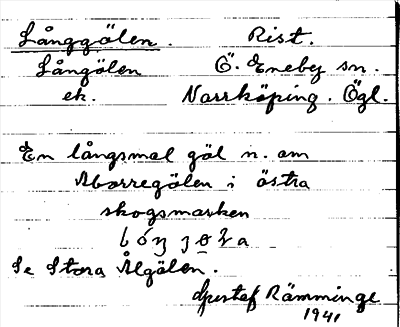 Långgölen. Rist.
Långölen Ö. Eneby sn.
ek. Norrköping. Ögl.
En långsmal göl n. om
Aborregölen i östra
skogsmarken
Se Stora Älgölen.
Rämminge
1941